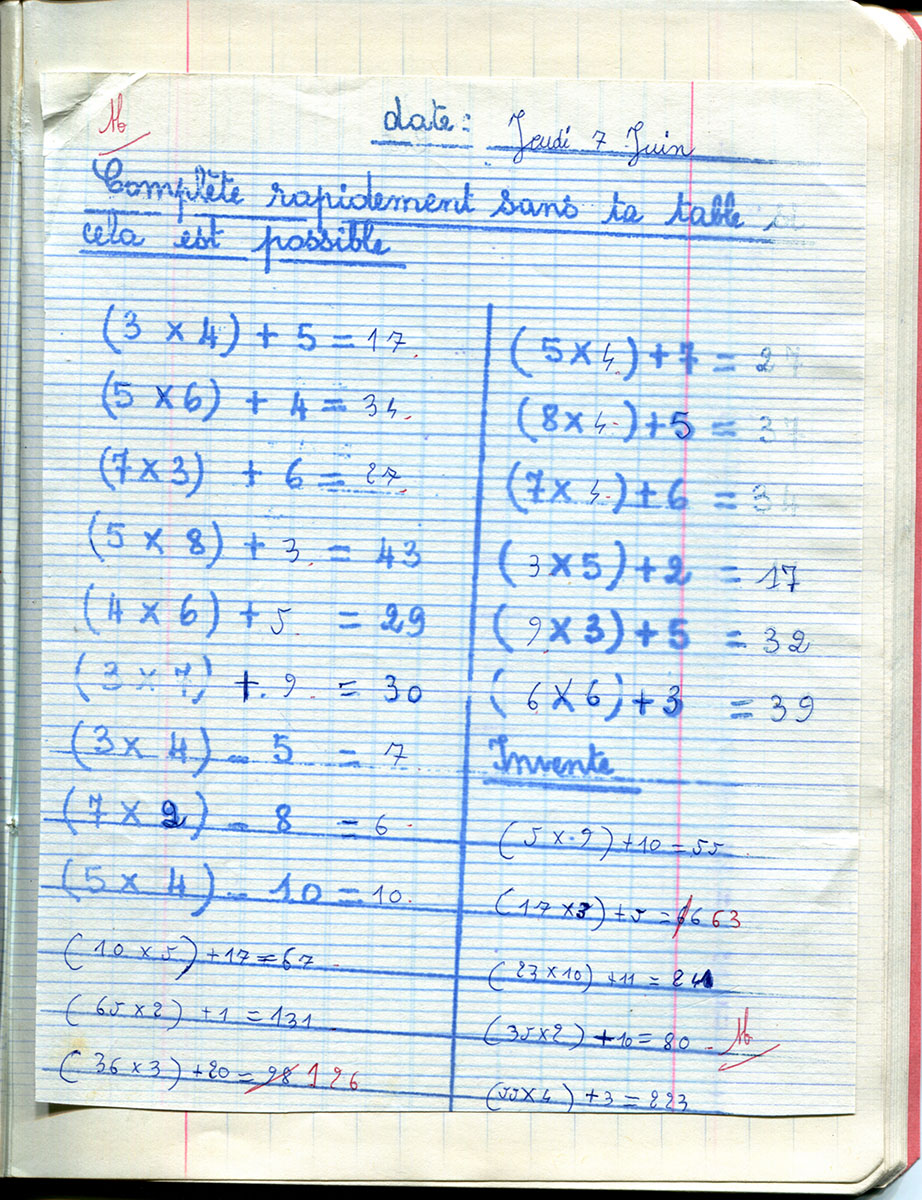 date: Jeudi 7 Juin
Complète rapidement sans ta table si
cela est possible
(3 x 4) + 5 = 17
(5 x 6) + 4 = 34
(7 x 3) + 6 = 27
(5 x 8) + 3 = 43
(4 x 6) + 5 = 29
(3 x 7) + 9 = 30
(3 x 4) - 5 = 7
(7 x 2) - 8 = 6
(5 x 4) - 10 = 10
(10 x 5) + 17 = 67
(65 x 2) + 1 = 131
(36 x 3) + 20 = 98 126
(5 x 4) + 7 = 27
(8 x 4) + 5 = 37
(7 x 4) + 6 = 34
(3 x 5) + 2 = 17
(9 x 3) + 5 = 32
(6 x 6) + 3 = 39
Invente
(5 x 9) + 10 = 55
(17 x 3) + 5 =
(23 x 10) + 11 = 241
(35 x 2) + 10 = 80
(55 x 4) + 3 = 223